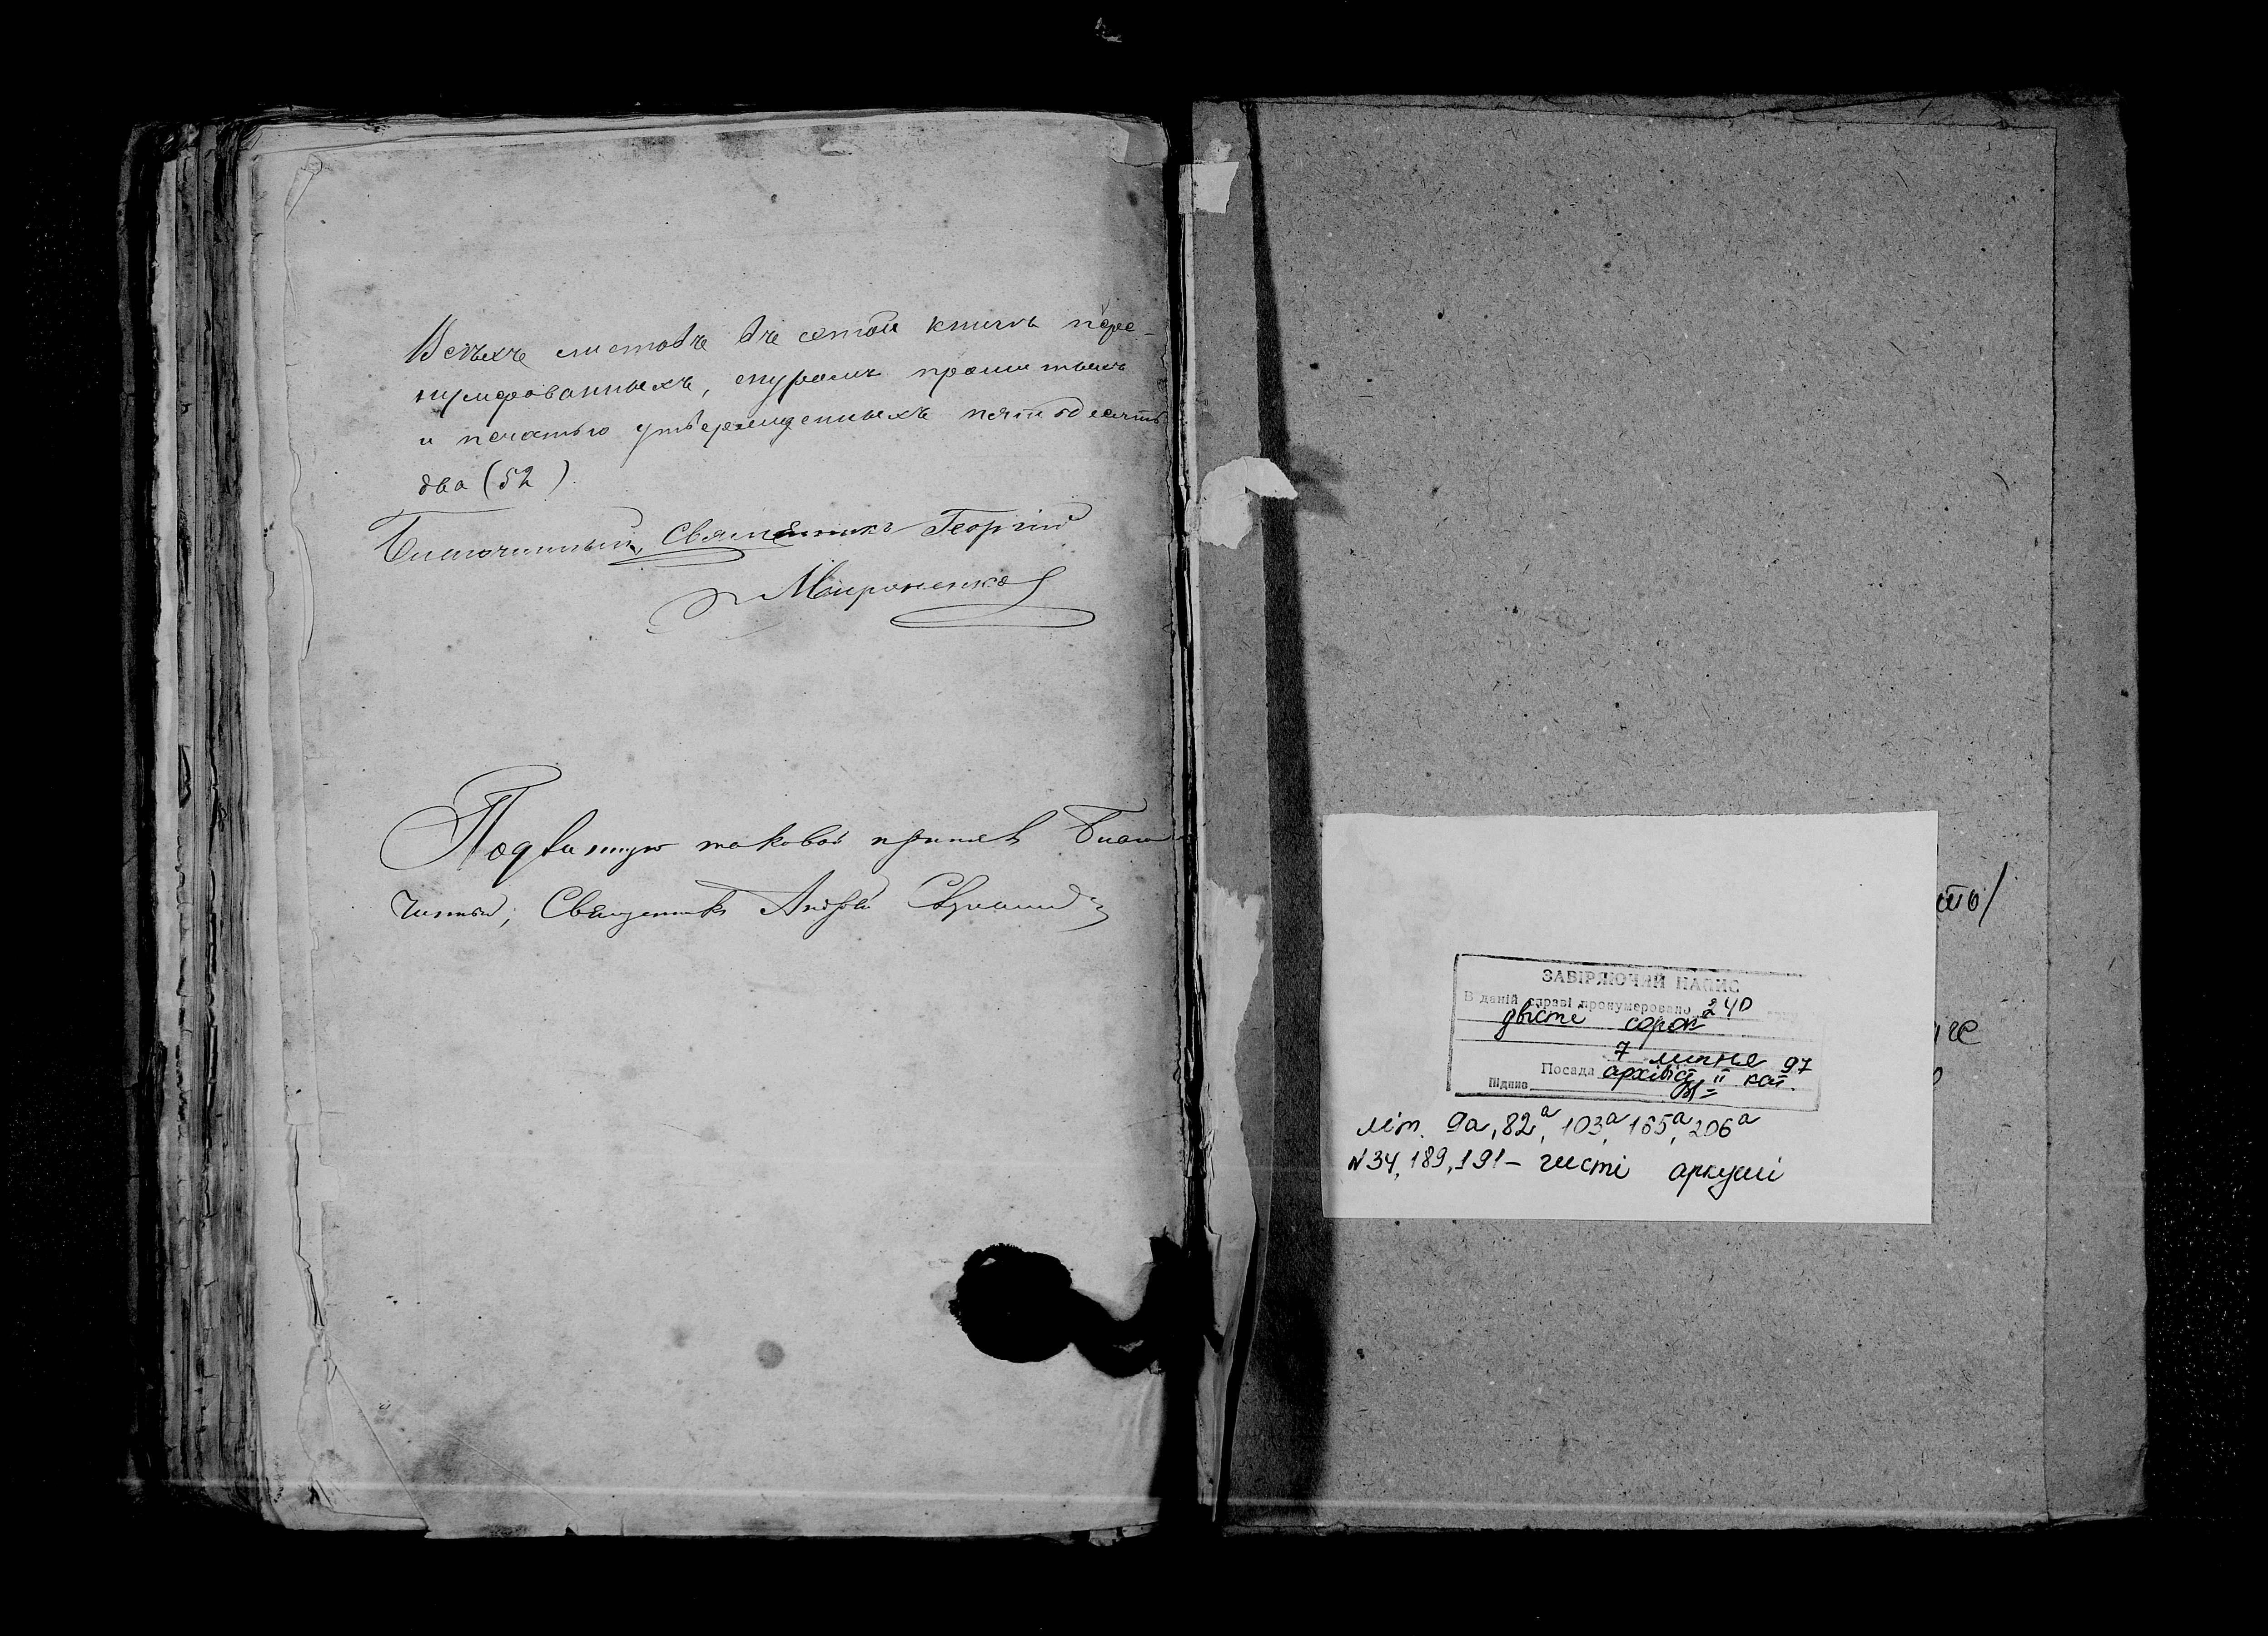 Всѣхъ листовъ въ сотой книгѣ пере-
нумерованныхъ, шнуромъ прошитыхъ
и печатью утвержденныхъ пятьдесятъ
два (52).
Благочинный, Священникъ Георгій
Мироненко
Подлинную таковой принялъ Благо
чинный, Священникъ Андрей
ЗАВІРЯЮЧИЙ НАПИС
В даній справі пронумеровано 240
двісті сорок
7 липня 97
Посада архівіст II кат.
Підпис
літ. 9а, 82а, 103а, 165а, 206а
N 34, 189, 191 – чисті аркуші